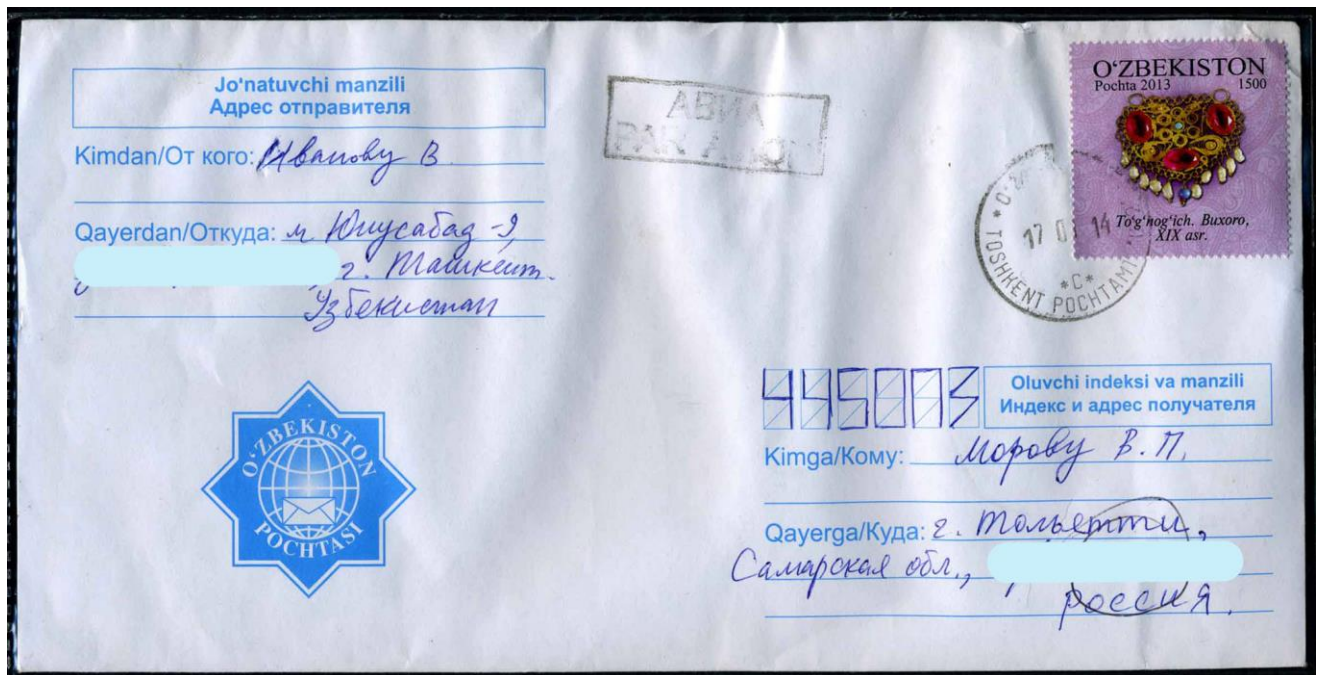 Jo'natuvchi manzili
Адрес отправителя
Kimdan/От кого: Иванову В.
Qayerdan/Откуда: м. Юнусабад -9,
г. Ташкент.
Узбекистан
АВИА
PAR AVION
O‘ZBEKISTON
Pochta 2013 1500
To‘g‘nog‘ich. Buxoro,
XIX asr.
17 0 14
*C*
TOSHKENT POCHTAMTI
O‘ZBEKISTON
POCHTASI
445003
Oluvchi indeksi va manzili
Индекс и адрес получателя
Kimga/Кому: Морову В.П.
Qayerga/Куда: г. Тольятти,
Самарская обл.,
Россия.